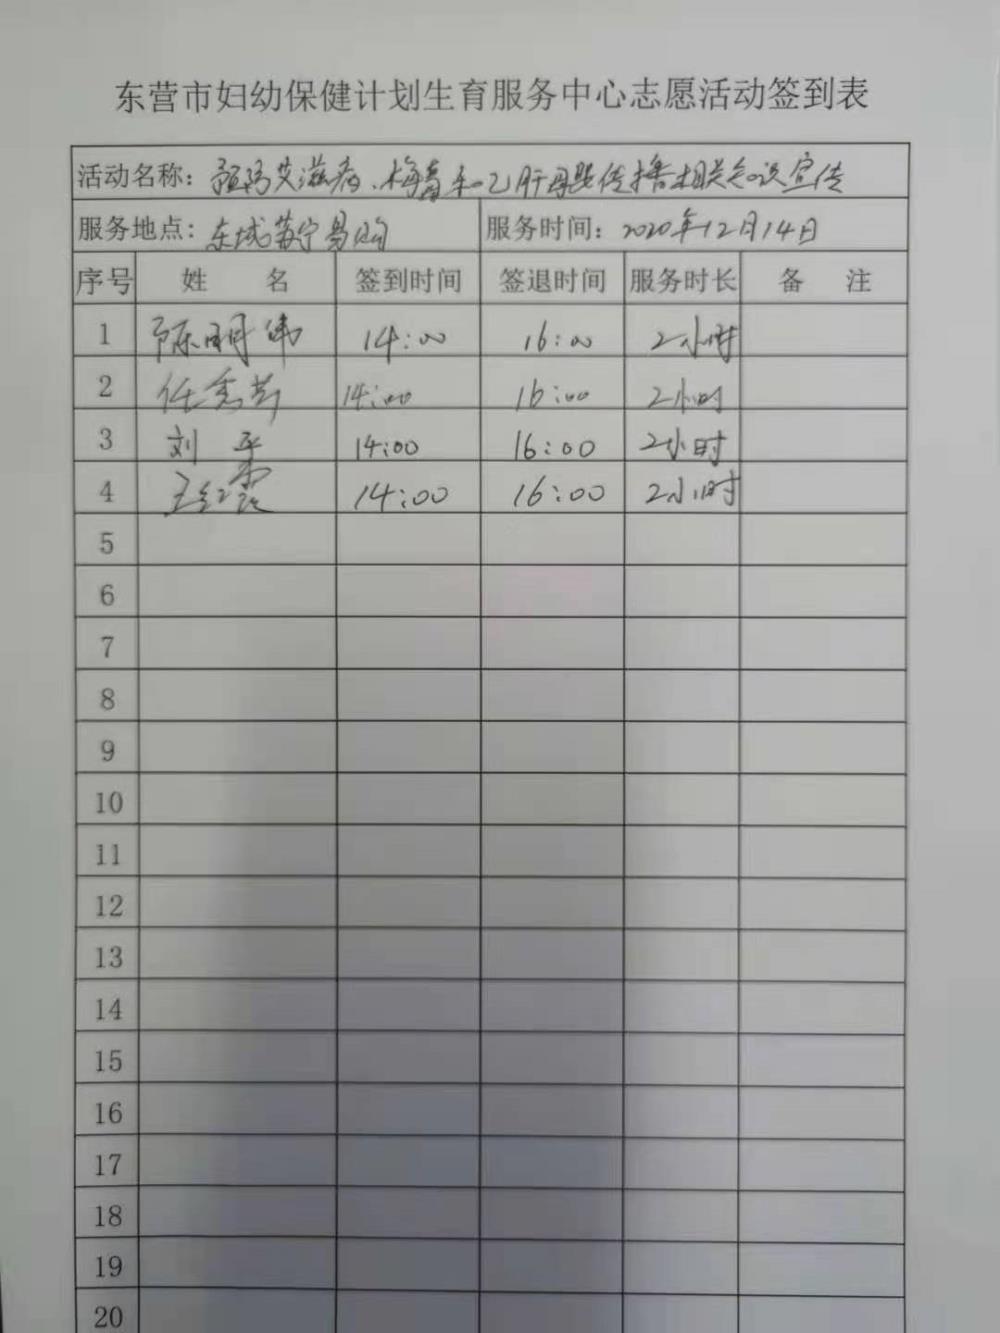 东营市妇幼保健计划生育服务中心志愿活动签到表
活动名称：预防艾滋病、梅毒和乙肝母婴传播相关知识宣传
服务地点：东城苏宁易购 服务时间：2020年12月14日
序号 姓 名 签到时间 签退时间 服务时长 备 注
1 陈明伟 14:00 16:00 2小时
2 任秀芳 14:00 16:00 2小时
3 刘平 14:00 16:00 2小时
4 王红霞 14:00 16:00 2小时
5
6
7
8
9
10
11
12
13
14
15
16
17
18
19
20